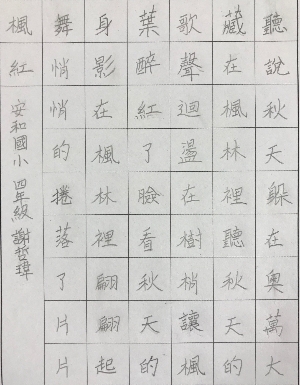 聽說秋天躲在奧萬大
藏在楓林裡聽秋天的
歌聲迴盪在樹梢讓楓
葉醉紅了臉看秋天的
身影在楓林裡翩翩起
舞悄悄的捲落了片片
楓紅 安和國小 四年級 謝哲瑋